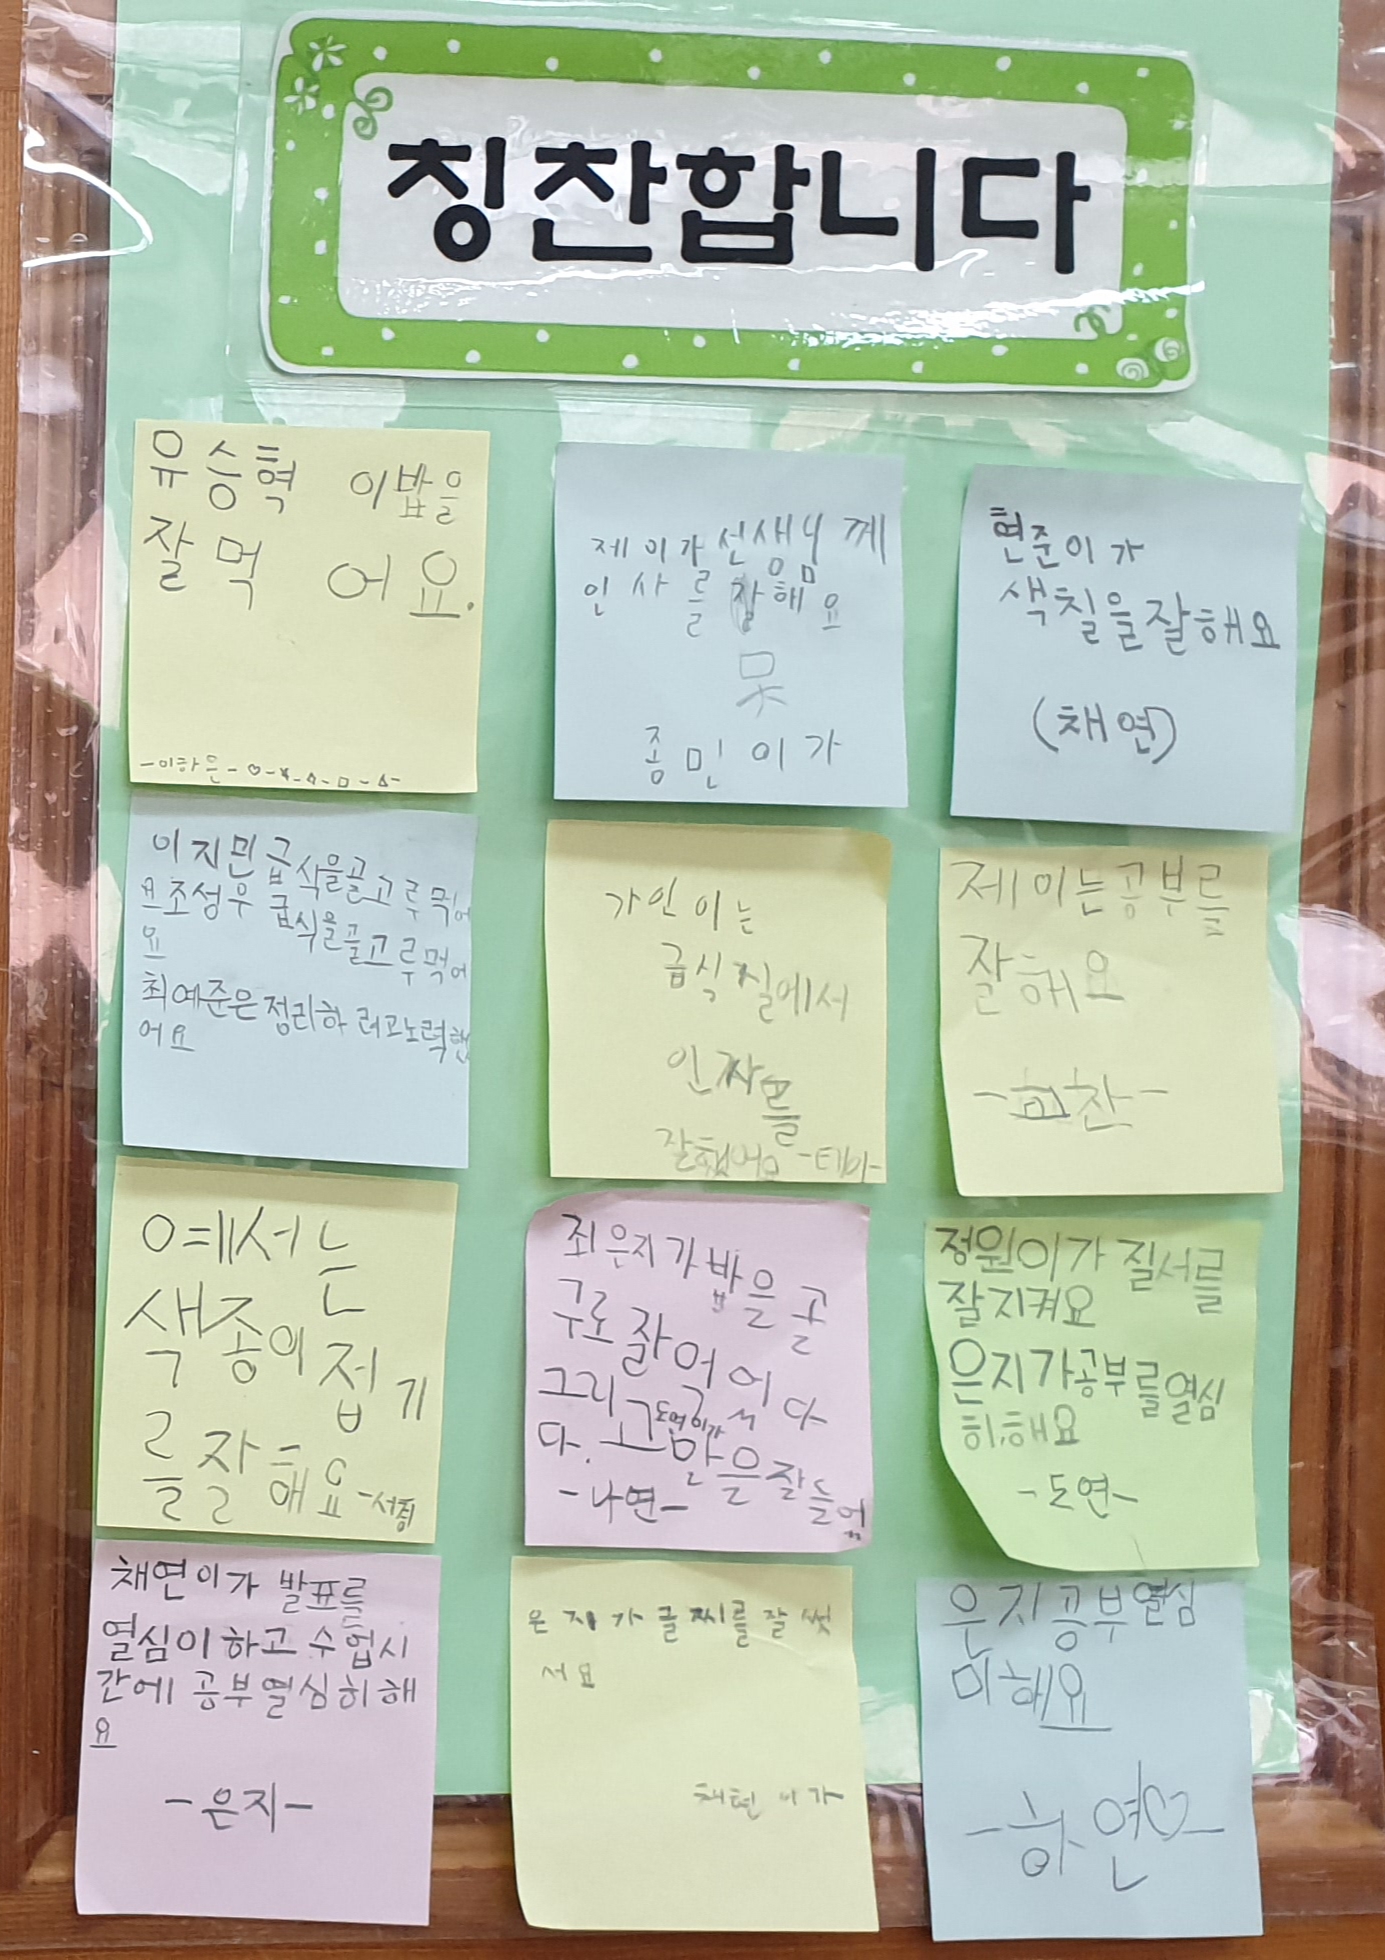 칭찬합니다
유승혁 이밥을
잘먹 어요.
-이하은-
제이가선생님께
인사를잘해요
종민이가
현준이가
색칠을잘해요
(채연)
이지민급식을골고루먹어
요조성우급식을골고루먹어
요
최예준은정리하려고노력했
어요
가인이는
급식질에서
인짜를
잘했어요-테이-
제이는공부를
잘해요
예서는
색종이접기
를잘해요
최은지가밥을골
구로잘먹어다
그리고
도연이가
-나연-
정원이가 질서를
잘지켜요
은지가공부를열심
히해요
-도연-
채연이가 발표를
열심이하고수업시
간에 공부열심히해
요
-은지-
은지가글씨를잘썻
서요
은지공부열심
이해요
-하연♡-